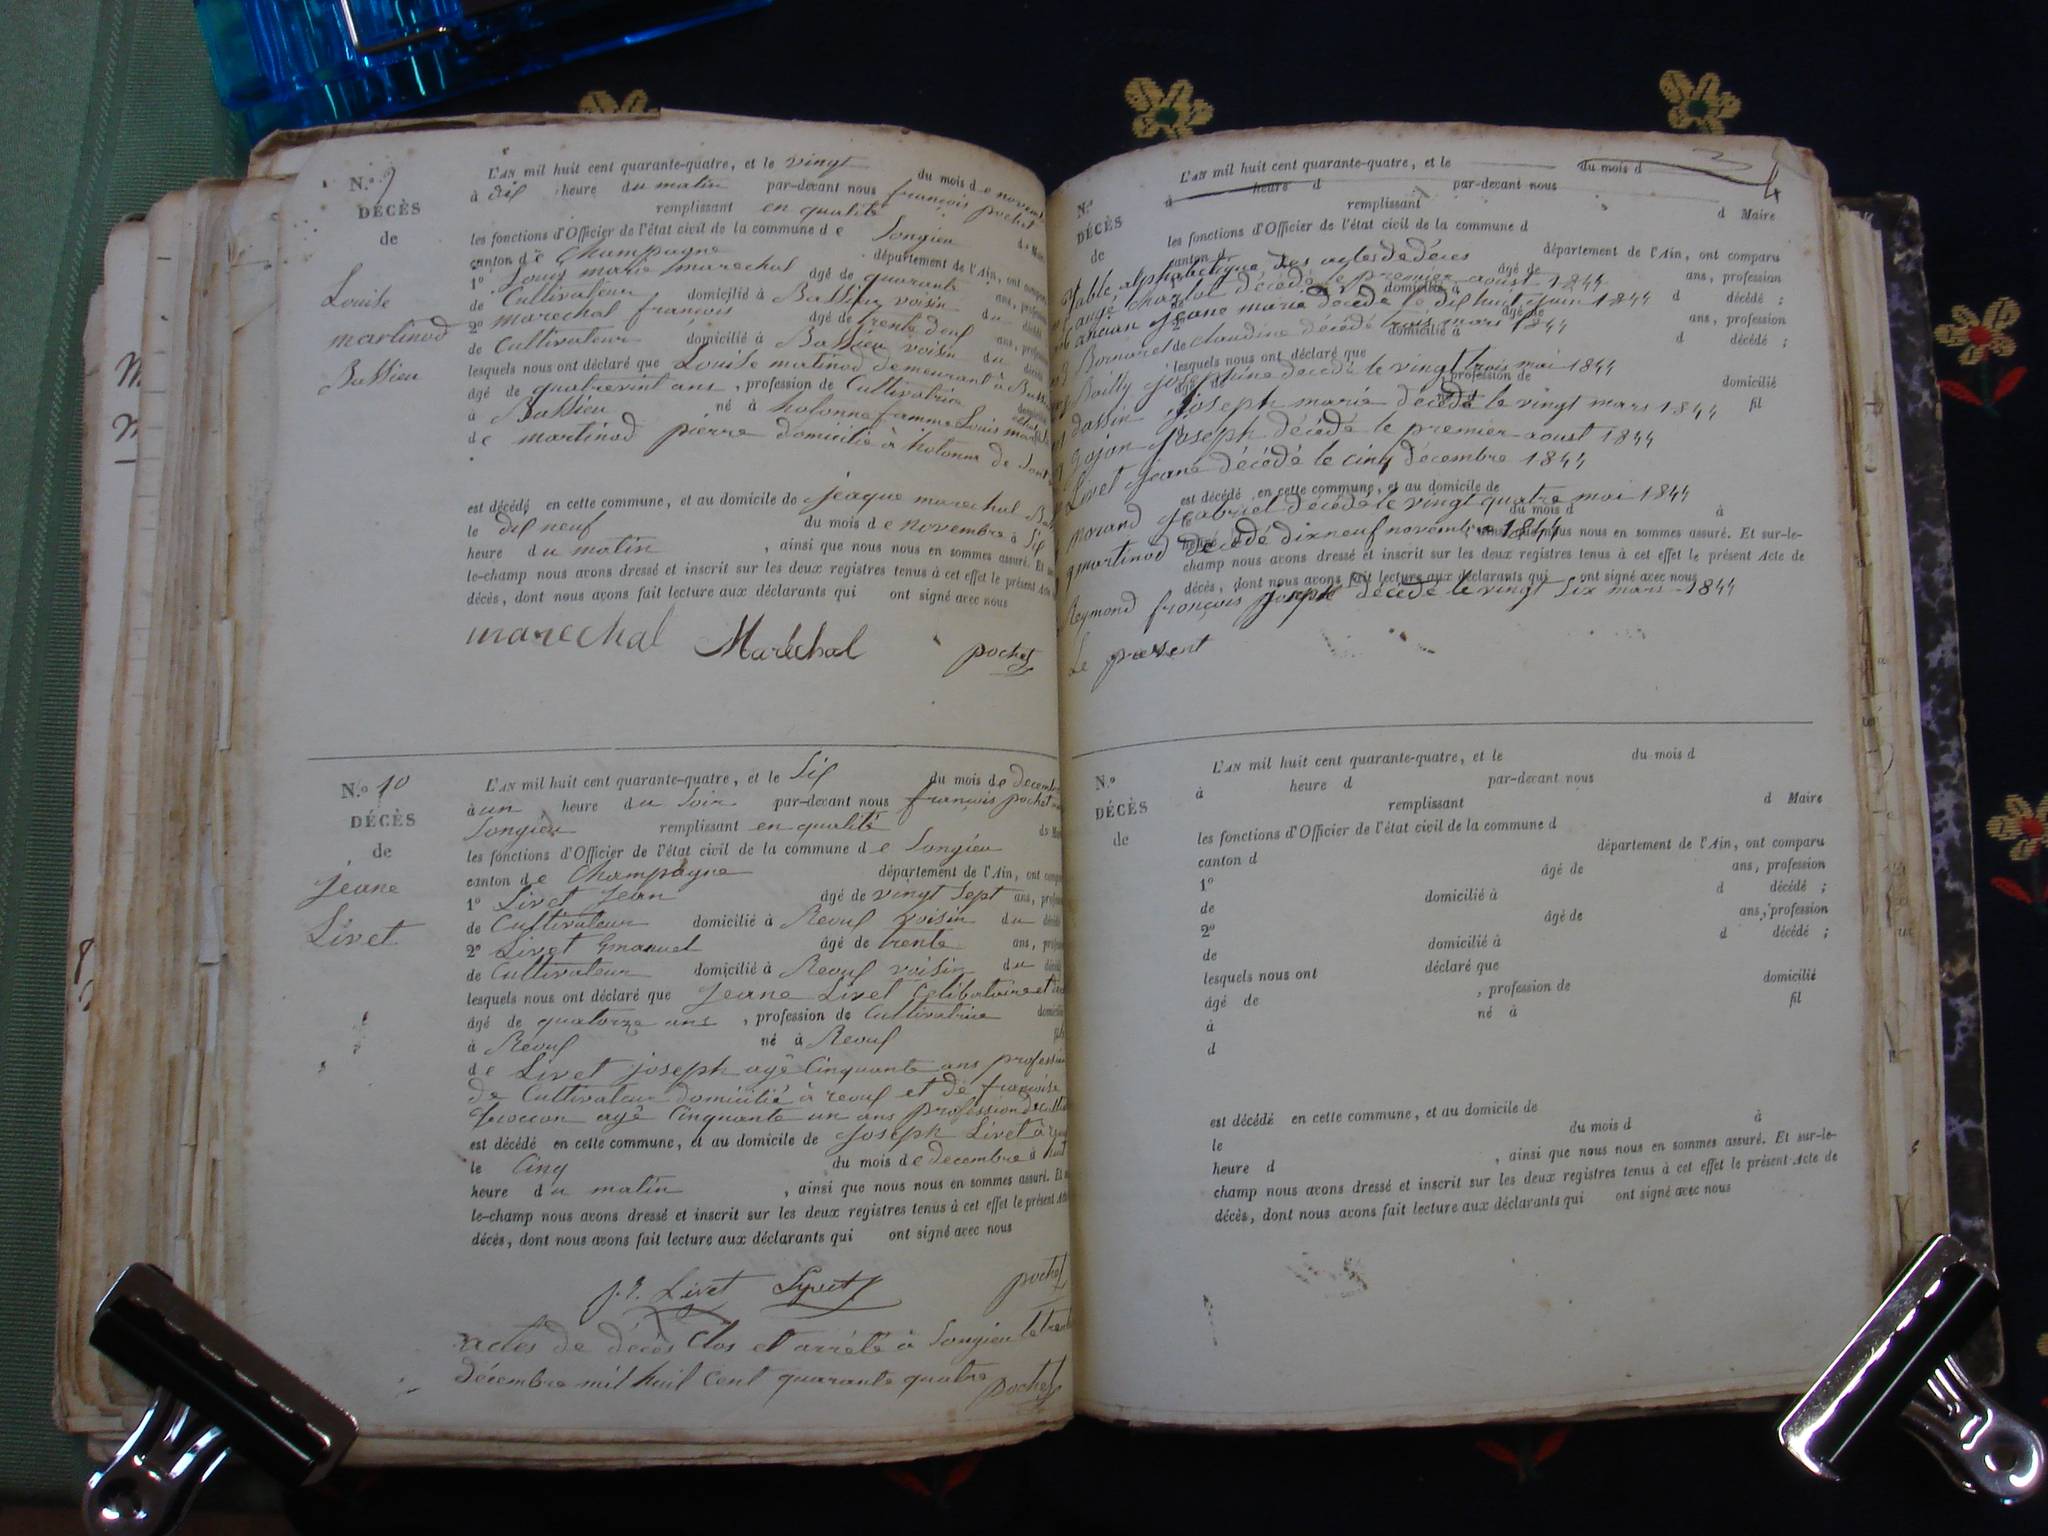 N.o 9
DÉCÈS
de
Louise
martinod
Bassieu
L'AN mil huit cent quarante-quatre, et le vingt du mois de novem
à dix heure du matin par-devant nous françois pochet
remplissant en qualité
les fonctions d'Officier de l'état civil de la commune de Songieu
canton de Champagne département de l'Ain, ont
1o Louis marie marechal âgé de quarante ans,
de Cultivateur domicilié à Bassieu voisin du
2o marechal françois âgé de trente deux ans,
de Cultivateur domicilié à Bassieu voisin du
lesquels nous ont déclaré que Louise matinod demeurant à
âgé de quatrevint ans , profession de Cultivatrice
à Bassieu né à hotonne famme Louis
de martinod pierre domicilié à hotonne de
est décédé en cette commune, et au domicile de jeaque marechal
le dix neuf du mois de novembre à Six
heure du matin , ainsi que nous nous en sommes assuré. Et
le-champ nous avons dressé et inscrit sur les deux registres tenus à cet effet le présent Acte
décès, dont nous avons fait lecture aux déclarants qui ont signé avec nous
marechal Maréchal pochet
N.o 10
DÉCÈS
de
jeane
Livet
L'AN mil huit cent quarante-quatre, et le Six du mois de decemb
à un heure du Soir par-devant nous françois pochet
Songieu remplissant en qualité
les fonctions d'Officier de l'état civil de la commune de Songieu
canton de Champagne département de l'Ain, ont
1o Livet Jean âgé de vingt Sept ans,
de Cultivateur domicilié à Reouf voisin du
2o Livet Emanuel âgé de trente ans,
de Cultivateur domicilié à Reouf voisin du
lesquels nous ont déclaré que jeane Livet Celibataire et
âgé de quatorze ans , profession de Cultivatrice
à Reouf né à Reouf
de Livet joseph agé Cinquante ans profession
de Cultivateur domicilié à reouf et de françoise
agé Cinquante un ans profession de
est décédé en cette commune, et au domicile de joseph Livet à
le Cinq du mois de decembre à huit
heure du matin , ainsi que nous nous en sommes assuré. Et
le-champ nous avons dressé et inscrit sur les deux registres tenus à cet effet le présent Acte
décès, dont nous avons fait lecture aux déclarants qui ont signé avec nous
Livet Lyvet pochet
actes de décès Clos et arrété à Songieu le trente
décembre mil huit Cent quarante quatre pochet
L'AN mil huit cent quarante-quatre, et le du mois d
à heure d par-devant nous
N.o
remplissant d Maire
DÉCÈS
les fonctions d'Officier de l'état civil de la commune d
de
canton d département de l'Ain, ont comparu
Table alphabetique des actes de décès
âgé de ans, profession
augé charlot décédé le premier aoust 1844
domicilié à d décédé ;
ancian jeane marie décédé le dix huit juin 1844
âgé de ans, profession
Bornaret claudine décédé trois mars 1844
de domicilié à d décédé ;
lesquels nous ont déclaré que
Bailly josephine decédé le vingt trois mai 1844
âgé de profession de domicilié
dassin joseph marie décédé le vingt mars 1844
né à fil
gojon joseph décédé le premier aoust 1844
Livet jeane décédé le cinq décembre 1844
est décédé en cette commune, et au domicile de
morand gabriel décédé le vingt quatre mai 1844
du mois d à
martinod décédé dix neuf novembre 1844
nous nous en sommes assuré. Et sur-le-
champ nous avons dressé et inscrit sur les deux registres tenus à cet effet le présent Acte de
décès, dont nous avons fait lecture aux déclarants qui ont signé avec nous
Reymond françois joseph décédé le vingt Six mars 1844
Le present
N.o
DÉCÈS
de
L'AN mil huit cent quarante-quatre, et le du mois d
à heure d par-devant nous
remplissant d Maire
les fonctions d'Officier de l'état civil de la commune d
canton d département de l'Ain, ont comparu
1o âgé de ans, profession
de domicilié à d décédé ;
2o âgé de ans, profession
de domicilié à d décédé ;
lesquels nous ont déclaré que
âgé de , profession de domicilié
à né à fil
d
est décédé en cette commune, et au domicile de
le du mois d à
heure d , ainsi que nous nous en sommes assuré. Et sur-le-
champ nous avons dressé et inscrit sur les deux registres tenus à cet effet le présent Acte de
décès, dont nous avons fait lecture aux déclarants qui ont signé avec nous